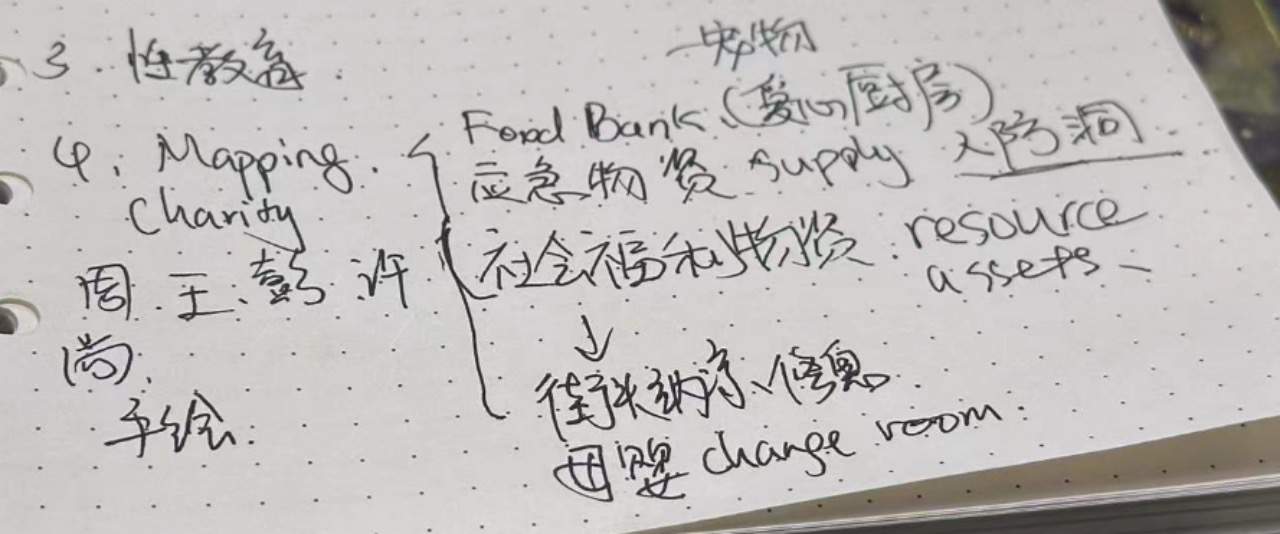 3. 性教育.
—宠物
4. Mapping.
Charity
Food Bank、(爱心厨房)
应急物资 supply 人防洞
社会福利物资. resource
assets、
周.王.彭.许
尚.
手绘.
↓
街头纳凉、休息.
母婴 change room.